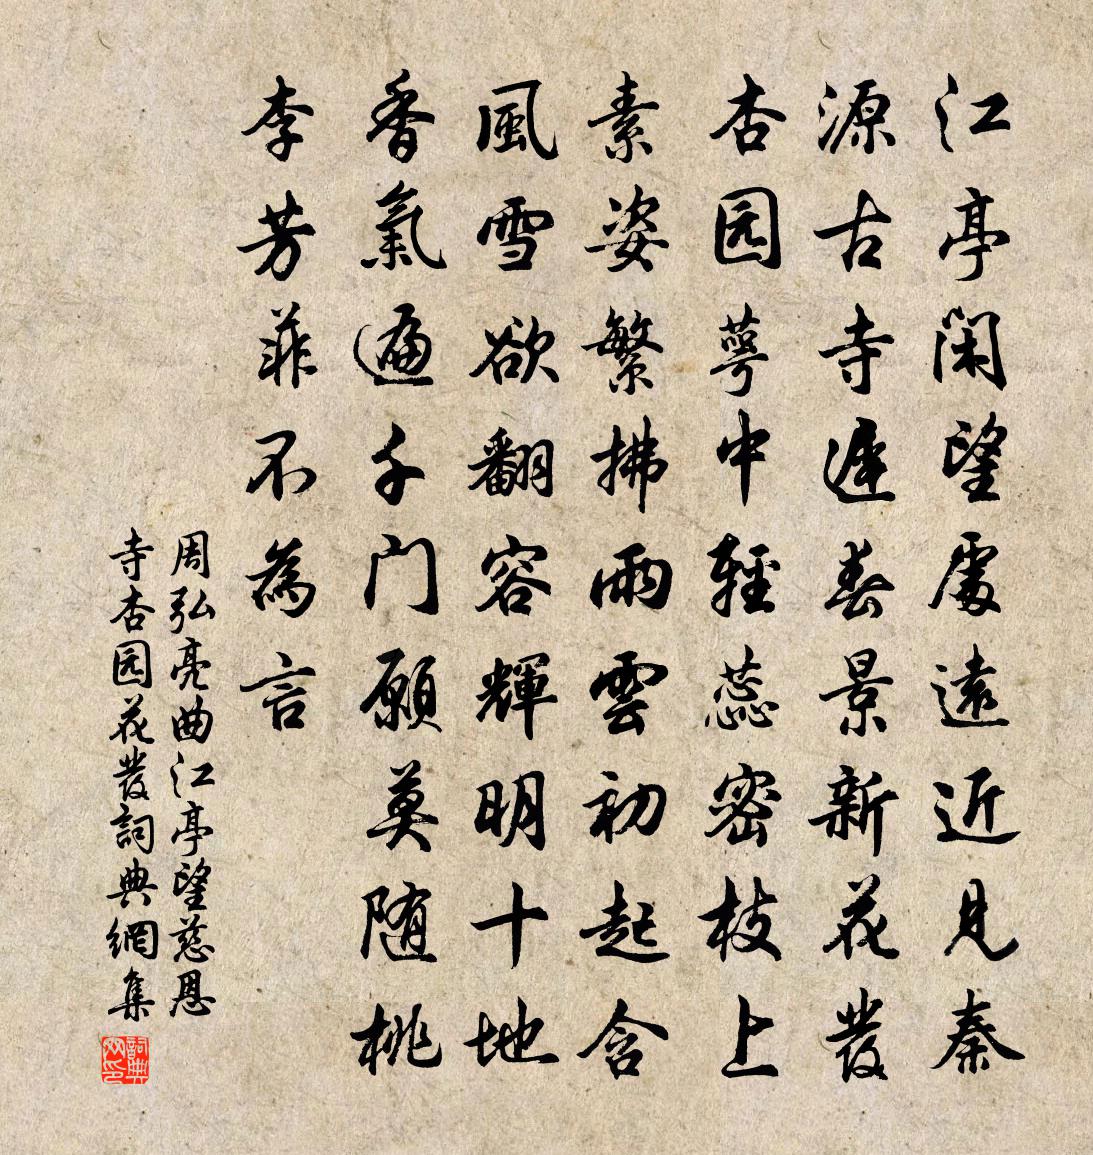 江亭閑望處遠近見秦
源古寺遲春景新花發
杏园萼中輕蕊密枝上
素姿繁拂雨雲初起含
風雪欲翻容輝明十地
香氣遍千门願莫随桃
李芳菲不為言
周弘亮曲江亭望慈恩
寺杏园花發詞典網集
詞典
网印